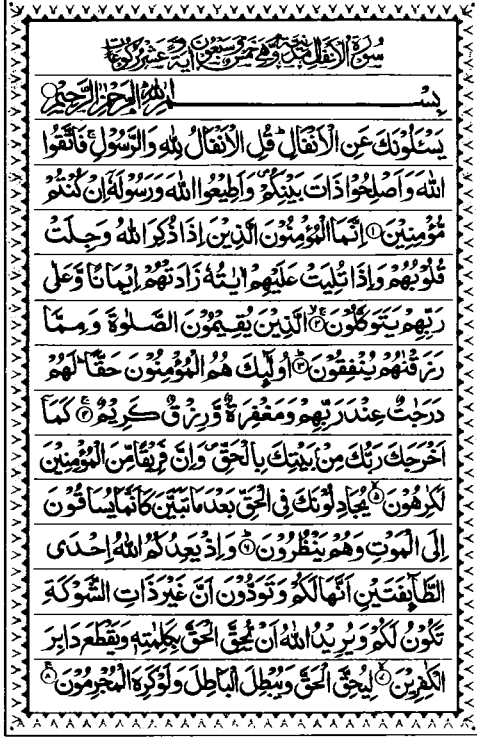 سُوْرَةُ الْاَنْفَالِ مَدَنِيَّةٌ وَّهِيَ خَمْسٌ وَّسَبْعُوْنَ اٰيَةً وَّعَشْرُ رُكُوْعَاتٍ
بِسْمِ اللّٰهِ الرَّحْمٰنِ الرَّحِيْمِ
يَسْـَٔلُوْنَكَ عَنِ الْاَنْفَالِ ؕ قُلِ الْاَنْفَالُ لِلّٰهِ وَالرَّسُوْلِ ۚ فَاتَّقُوا
اللّٰهَ وَاَصْلِحُوْا ذَاتَ بَيْنِكُمْ ۪ وَاَطِيْعُوا اللّٰهَ وَرَسُوْلَهٗۤ اِنْ كُنْتُمْ
مُّؤْمِنِيْنَ ۝۱ اِنَّمَا الْمُؤْمِنُوْنَ الَّذِيْنَ اِذَا ذُكِرَ اللّٰهُ وَجِلَتْ
قُلُوْبُهُمْ وَاِذَا تُلِيَتْ عَلَيْهِمْ اٰيٰتُهٗ زَادَتْهُمْ اِيْمَانًا وَّعَلٰى
رَبِّهِمْ يَتَوَكَّلُوْنَ ۝۲ۚۖ الَّذِيْنَ يُقِيْمُوْنَ الصَّلٰوةَ وَمِمَّا
رَزَقْنٰهُمْ يُنْفِقُوْنَ ۝۳ؕ اُولٰٓئِكَ هُمُ الْمُؤْمِنُوْنَ حَقًّا ؕ لَهُمْ
دَرَجٰتٌ عِنْدَ رَبِّهِمْ وَمَغْفِرَةٌ وَّرِزْقٌ كَرِيْمٌ ۝۴ۚ كَمَاۤ
اَخْرَجَكَ رَبُّكَ مِنْۢ بَيْتِكَ بِالْحَقِّ ۪ وَاِنَّ فَرِيْقًا مِّنَ الْمُؤْمِنِيْنَ
لَكٰرِهُوْنَ ۝۵ۙ يُجَادِلُوْنَكَ فِي الْحَقِّ بَعْدَ مَا تَبَيَّنَ كَاَنَّمَا يُسَاقُوْنَ
اِلَى الْمَوْتِ وَهُمْ يَنْظُرُوْنَ ۝۶ؕ وَاِذْ يَعِدُكُمُ اللّٰهُ اِحْدَى
الطَّآئِفَتَيْنِ اَنَّهَا لَكُمْ وَتَوَدُّوْنَ اَنَّ غَيْرَ ذَاتِ الشَّوْكَةِ
تَكُوْنُ لَكُمْ وَيُرِيْدُ اللّٰهُ اَنْ يُّحِقَّ الْحَقَّ بِكَلِمٰتِهٖ وَيَقْطَعَ دَابِرَ
الْكٰفِرِيْنَ ۝۷ۙ لِيُحِقَّ الْحَقَّ وَيُبْطِلَ الْبَاطِلَ وَلَوْ كَرِهَ الْمُجْرِمُوْنَ ۝۸ۚ